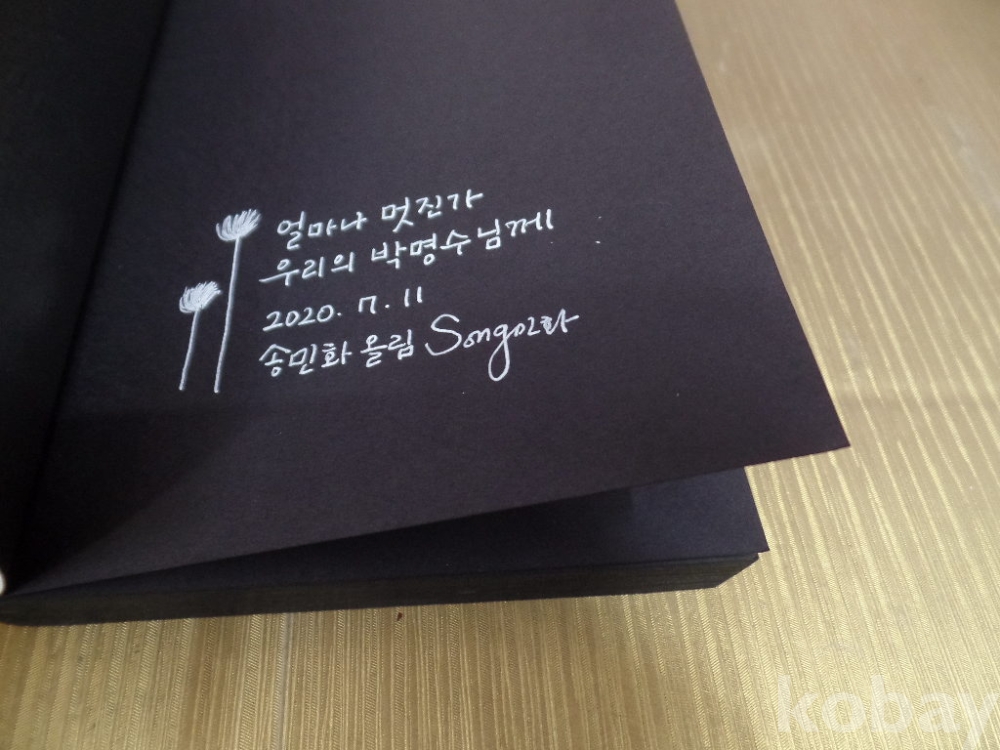 얼마나 멋진가
우리의 박명수님께
2020. 7. 11
송민화 올림 Song민화
kobay